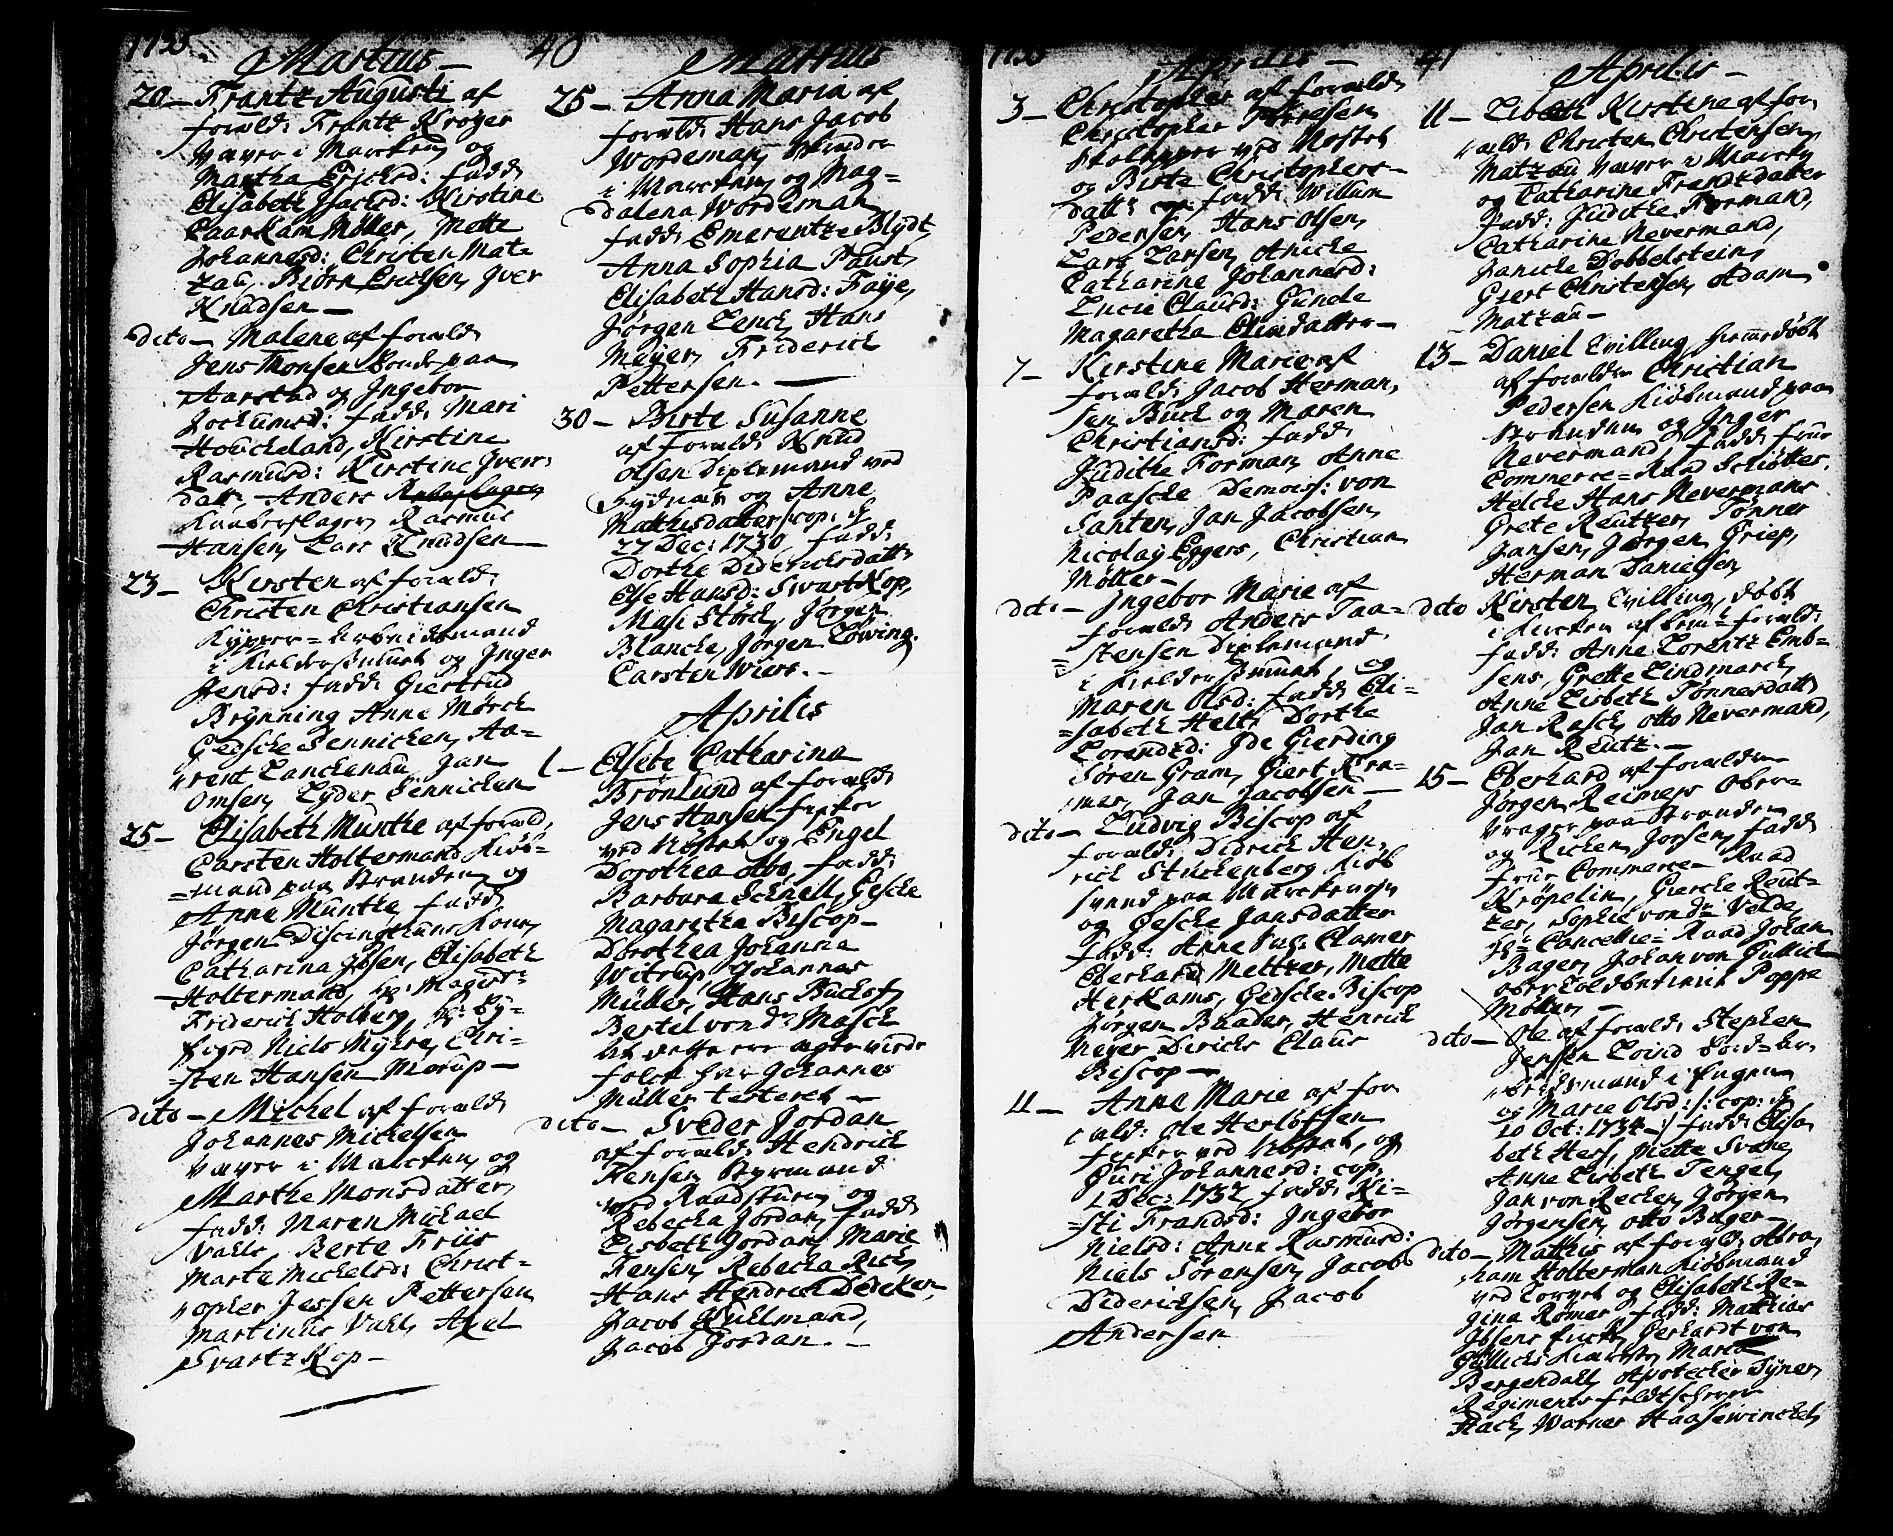 1735
40
Martius
20 – Frantz Augusti af
foræld: Frantz Krøyer
Væver i Marcken og
Martha Ericksd: fadd:
Elisabeth Isachsd: Kirstine
Paarkam Møller, Mette
Johannesd: Christen Mat-
zau, Biørn Ericksen, Iver
Knudsen –
dito – Malene af foræld:
Jens Monsen bonde paa
Aarstad og Ingebor
Jochumsd: fadd: Mari
Houckeland, Kirstine
Rasmusd: Kirstine Ivers
datt: Anders
Kaaberslager, Rasmus
Hansen, Lars Knudsen –
23 – Kirsten af foræld:
Christen Christiansen
Kypper-Arbeidsmand
i Kielderschuent og Inger
Jensd: fadd: Giertrud
Brynning Anne Mørch
Gedsche Sennicken, Aa-
rent Lanckenau, Jan
Omsen, Lyder Sennicken
25 – Elisabeth Munthe af foræld:
Carsten Holtermand Kiøb-
=mand paa Stranden og
Anne Munthe, fadd:
Jørgen Discingthuns Kone,
Catharina Ibsen, Elisabeth
Holtermand, hr: Magist:
Friderich Holberg, hr: By-
foged Niels Myhre, Chri-
=sten Hansen Morup –
dito – Michel af foræld:
Johannes Michelsen
Væver i Marcken og
Marthe Monsdatter,
fadd: Maren Michael
Vahls, Berte Friis
Marte Michelsd: Christ-
opher Jessen Pettersen,
Martinus Vahl, Axel
Svartz Kop –
Martius
25 – Anna Maria af
foræld: Hans Jacob
Wordeman,
i Marcken og Mag-
dalena Wordeman
fadd: Emerentze Blydt,
Anna Sophia Paust,
Elisabeth Hansd: Faije,
Jørgen Lenck, Hans
Meyer, Friderich
Pettersen. –
30 – Birte Susanne
af foræld: Knud
Olsen Diplemand ved
Sydnæs og Anne
Mathisdatter /: cop: d
27 Dec: 1730, fadd:
Dorthe Diderichsdatt:
Else Hansd: Svart Kop,
Masi Störch, Jørgen
Blancke, Jørgen Löwing,
Carsten Wiers. –
Aprilis
1 – Elsebe Catharina
Brønlund af foræld:
Jens Hansen fisker
ved Nøstet og Engel
Dorothea Abo, fadd:
Barbara Schnell, Gesche
Magaretha Biscop –
Dorothea Johanna
Witrup, Johannes
Müller, Hans Buchoff,
Bertel von dr: Masch
At dette ere ægtevirde
folck har Johannes
Müller testeret –
dito – Sveder Jordan
af foræld: Hendrich
Hensen Styrmand
ved Raadstuen og
Rebecha Jordan, fadd:
Lisbeth Jordan, Marie
Hensen, Rebecha Rich,
Hans Hendrich Dedeken,
Jacob Kuhlmand,
Jacob Jordan. –
1735
41
Aprilis –
3 – Christopher af foræld:
Christopher Iversen
ved Nøstet
og Birte Christophers-
datt: fadd: Willum
Pedersen, Hans Olsen,
Lars Larsen, Anicke
Catharine Johannesd:
Lucie Clausd: Gunele
Magaretha Eliædatter –
7 – Kirstine Marie af
foræld: Jacob Herman-
sen Buck og Maren
Christiansd: fadd:
Judithe Forman, Anne
Paasche Demois: von
Santen, Jan Jacobsen,
Nicolay Eggers, Christian
Møller –
dito – Ingebor Marie af
foræld: Anders Taa-
=stensen Diplemand
i og
Maren Olsd: fadd: Eli-
=sabeth Helt, Dorthe
Lorendzd: Ide Gierding
Søren Gram, Giert Kra-
mer, Jan Jacobsen –
dito – Ludvig Biscop af
foræld: Didrich Hen-
rich Stuckenberg Kiøb
svend paa Marckeveyen
og Gesche Jansdatter
fadd: Anne Sus. Clamer
Eberhard Meltzer, Mette
Herkams, Gedsche Biscop
Jørgen Baader, Henrich
Meyer Dirichs Claus
Biscop –
11 – Anne Marie af for
æld: Ole Herlöfsen
fisker ved Nøstet, og
Guri Johannesd: cop:
1 Dec: 1732, fadd: Ki-
=sti Frandsd: Ingebor
Nielsd: Anne Rasmusd:
Niels Sörensen, Jacob
Diderichsen, Jacob
Andersen
Aprilis –
11 – Lisbeth Kirstine af for
æld: Christen Christensen
Matzau Væver i Marcken
og Catharine Frendzdatter
fadd: Judithe Forman,
Catharine Nevermand,
Janicke Dobbelstein,
Giert Christensen, Adam
Matzau –
13 – Daniel tvilling hiemedøbt
af forældre Christian
Pedersen Kiøbmand paa
Stranden og Inger
Nevermand, fadd: frue
Commerce-Raad Schiøtter,
Helche Hans Nevermans
Grete Reutzer, Tønnes
Jansen, Jørgen Griep,
Herman Danielsen
dito Kirsten tvilling, døbt
i Kircken af bem:te foræld:
fadd: Anne Lorentz Emb-
sens, Grette Lindmarck,
Anne Lisbeth Tønnesdatt:
Jan Rasch, Otto Nevermand,
Jan Reutz. –
15 – Eberhard af forældre
Jørgen Reimers Ober-
vrager paa Stranden
og Ricken Jorsen, fadd:
frue Commerce-Raad
Krøpelin, Giercke Reut-
zer, Sophie von dr: Velde
hr: Cancellie-Raad Johan
Bager, Johan von Gullich
Poppe
Møller –
dito – Ole af foræld: Stephen
Jensen Loind Bord-Ar-
beidsmand i Engen
og Marie Olsd: /: cop: d
10 Oct: 1734 :/ fadd: Elisa
beth Hess, Mette Svane,
Anne Lisbeth Tengel,
Jan von Recken, Jørgen
Jørgensen, Otto Bager –
dito – Mathis af foræld: Abra-
ham Holterman Kiøbmand
ved Torvet og Elisabeth Re-
gina Rømer fadd: Mathias
Ibsens frue, Gerhardt von
Güllichs Kiereste, Maria
Bergendahl, Apotecker Tyner,
Regiments-feldtscherer
Hach, Warner Haasewinckel,